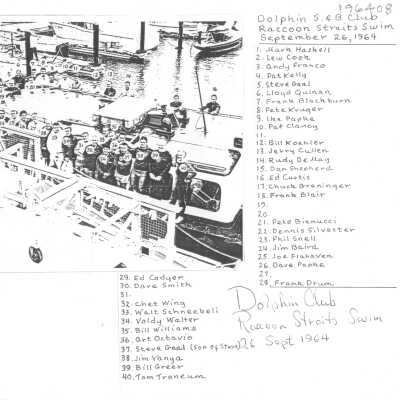 196408
Dolphin S. & B Club
Raccoon Straits Swim
September 26, 1964
1. Mark Haskell
2. Lew Cook
3. Andy Franco
4. Pat Kelly
5. Steve Gaal
6. Lloyd Quinan
7. Frank Blackburn
8. Pete Kruger
9. Ike Papke
10. Pat Clancy
11.
12. Bill Koehler
13. Jerry Cullen
14. Rudy DeMay
15. Dan Shepherd
16. Ed Curtis
17. Chuck Groninger
18. Frank Blair
19.
20.
21. Pete Bianucci
22. Dennis Silvester
23. Phil Snell
24. Jim Baird
25. Joe Flahaven
26. Dave Papke
27.
28. Frank Drum
29. Ed Codyer
30. Dave Smith
31.
32. Chet Wing
33. Walt Schneebeli
34. Voldy Walter
35. Bill Williams
36. Art Octavio
37. Steve Gaal (Son of Steve)
38. Jim Vanya
39. Bill Greer
40. Tom Traneum
Dolphin Club
Racoon Straits Swim
26 Sept 1964